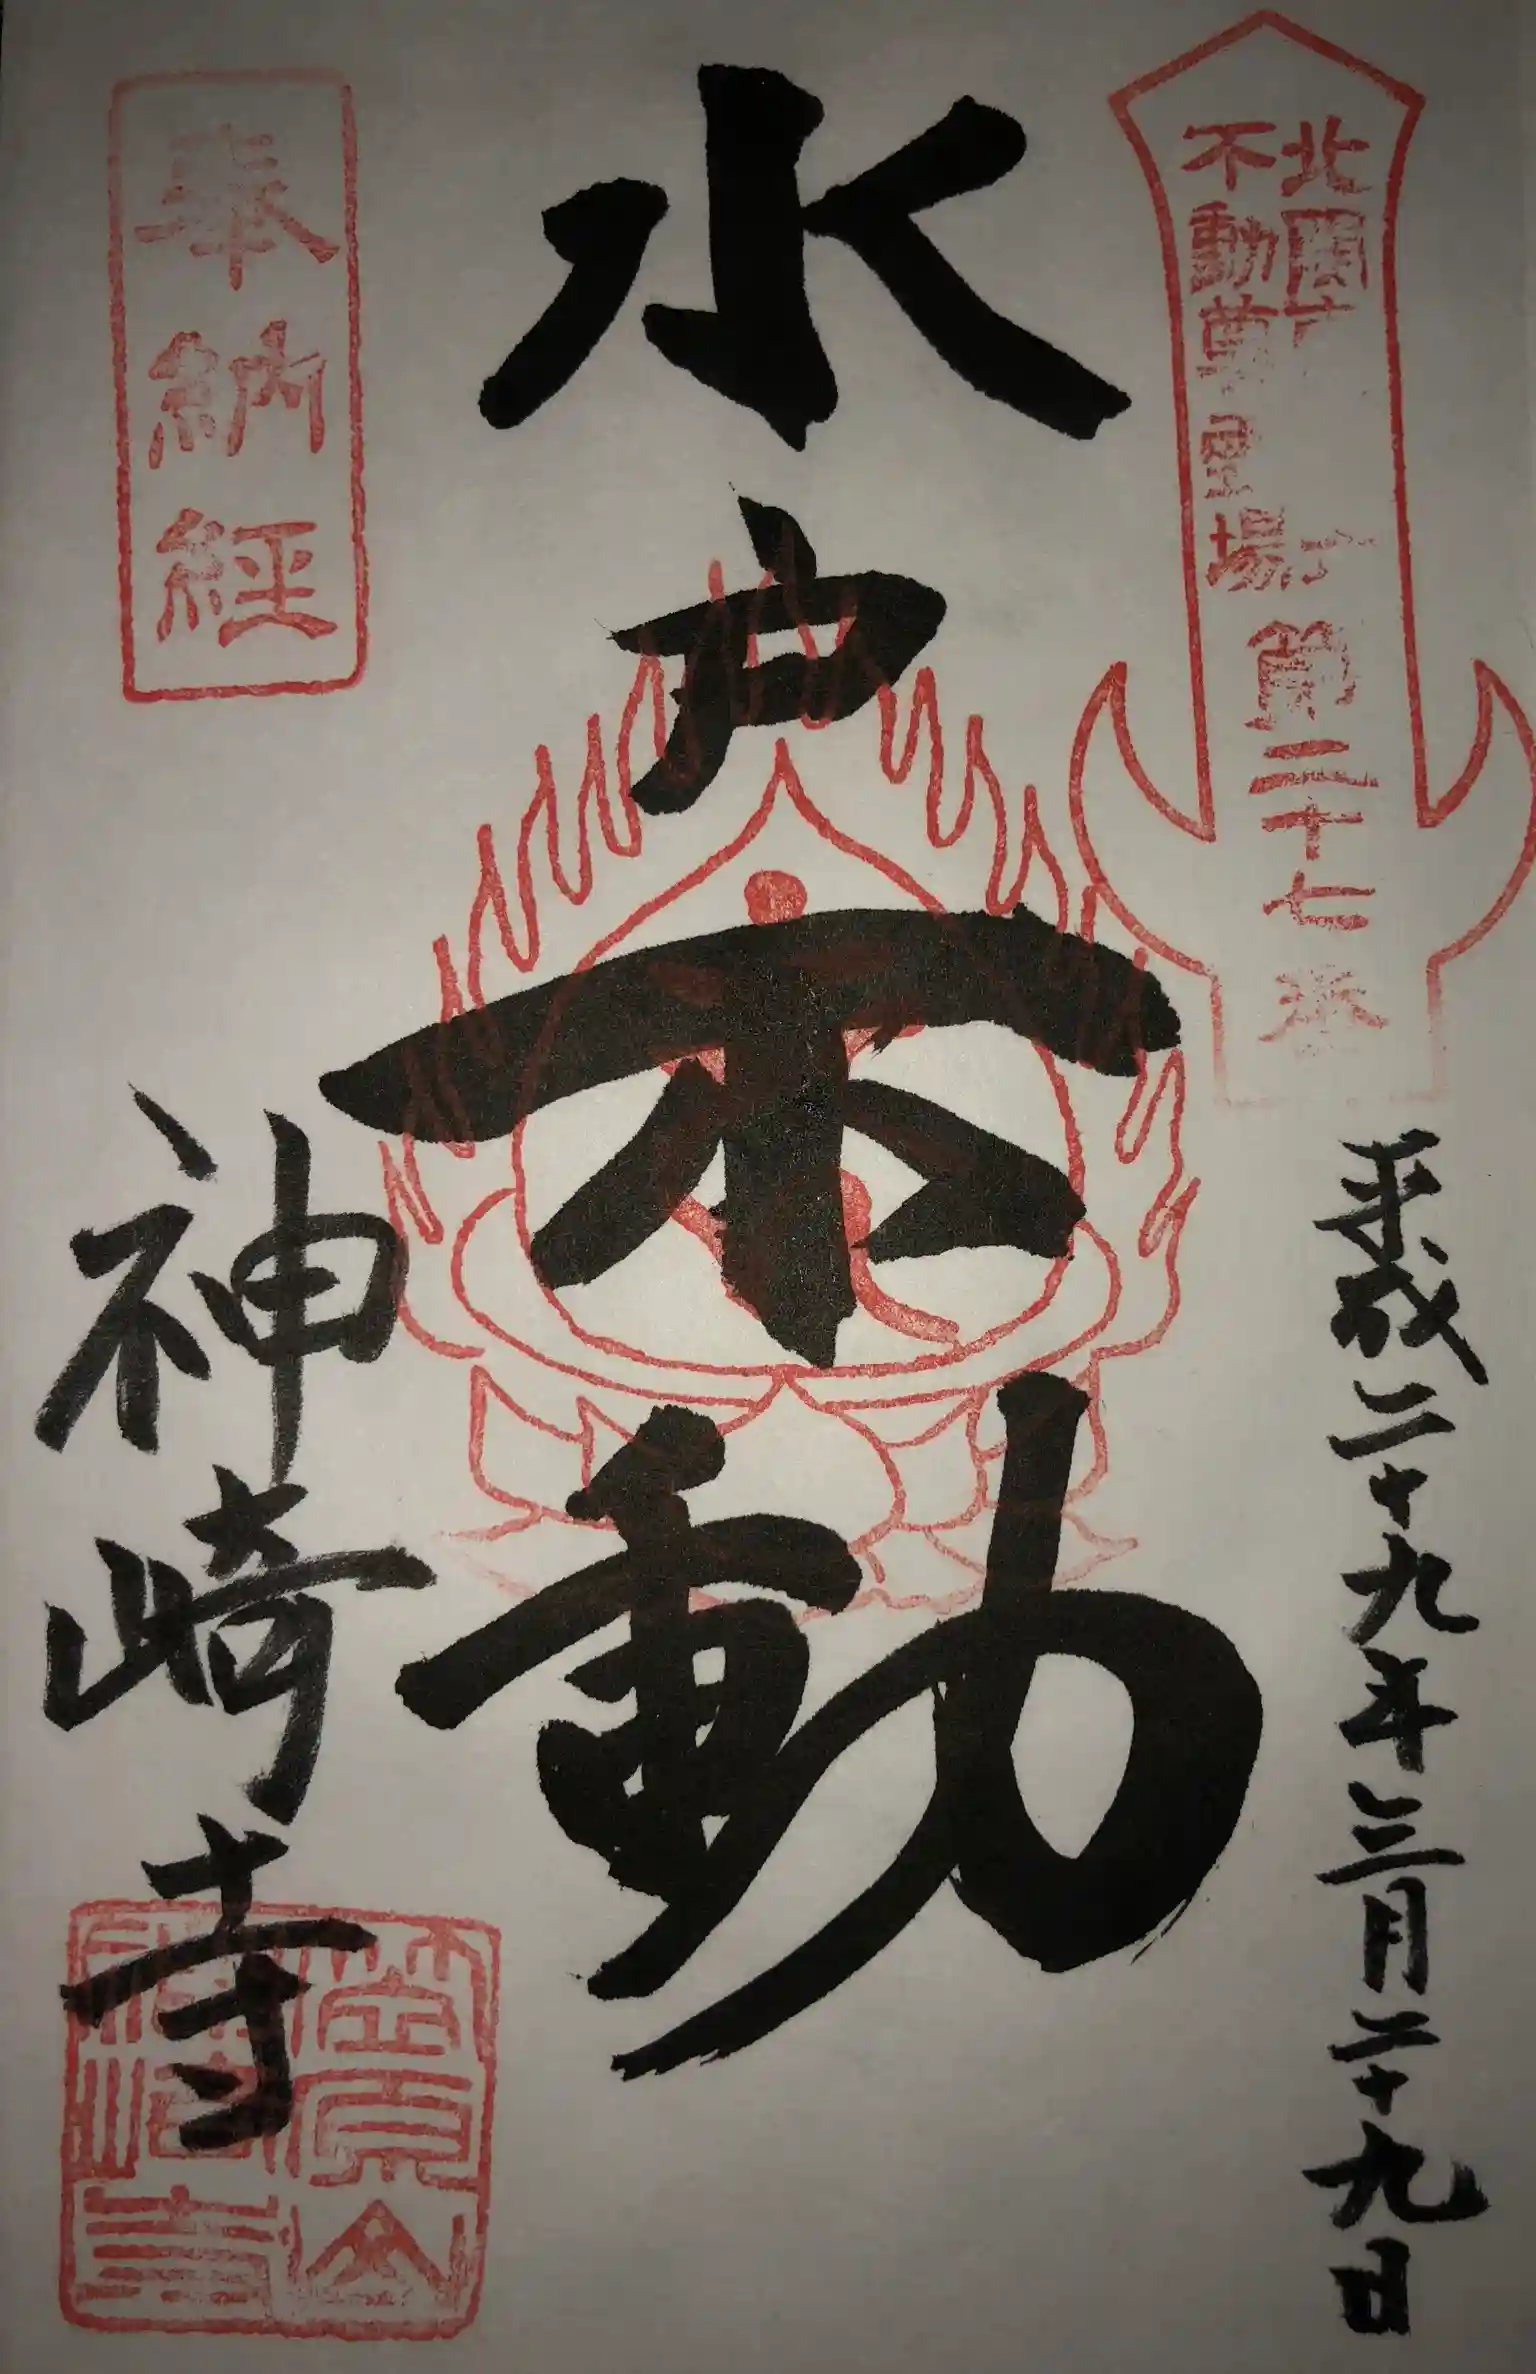 北関
不動尊霊場
第二十七番
平成二十九年三月二十九日
水戸不動
奉納経
神崎寺